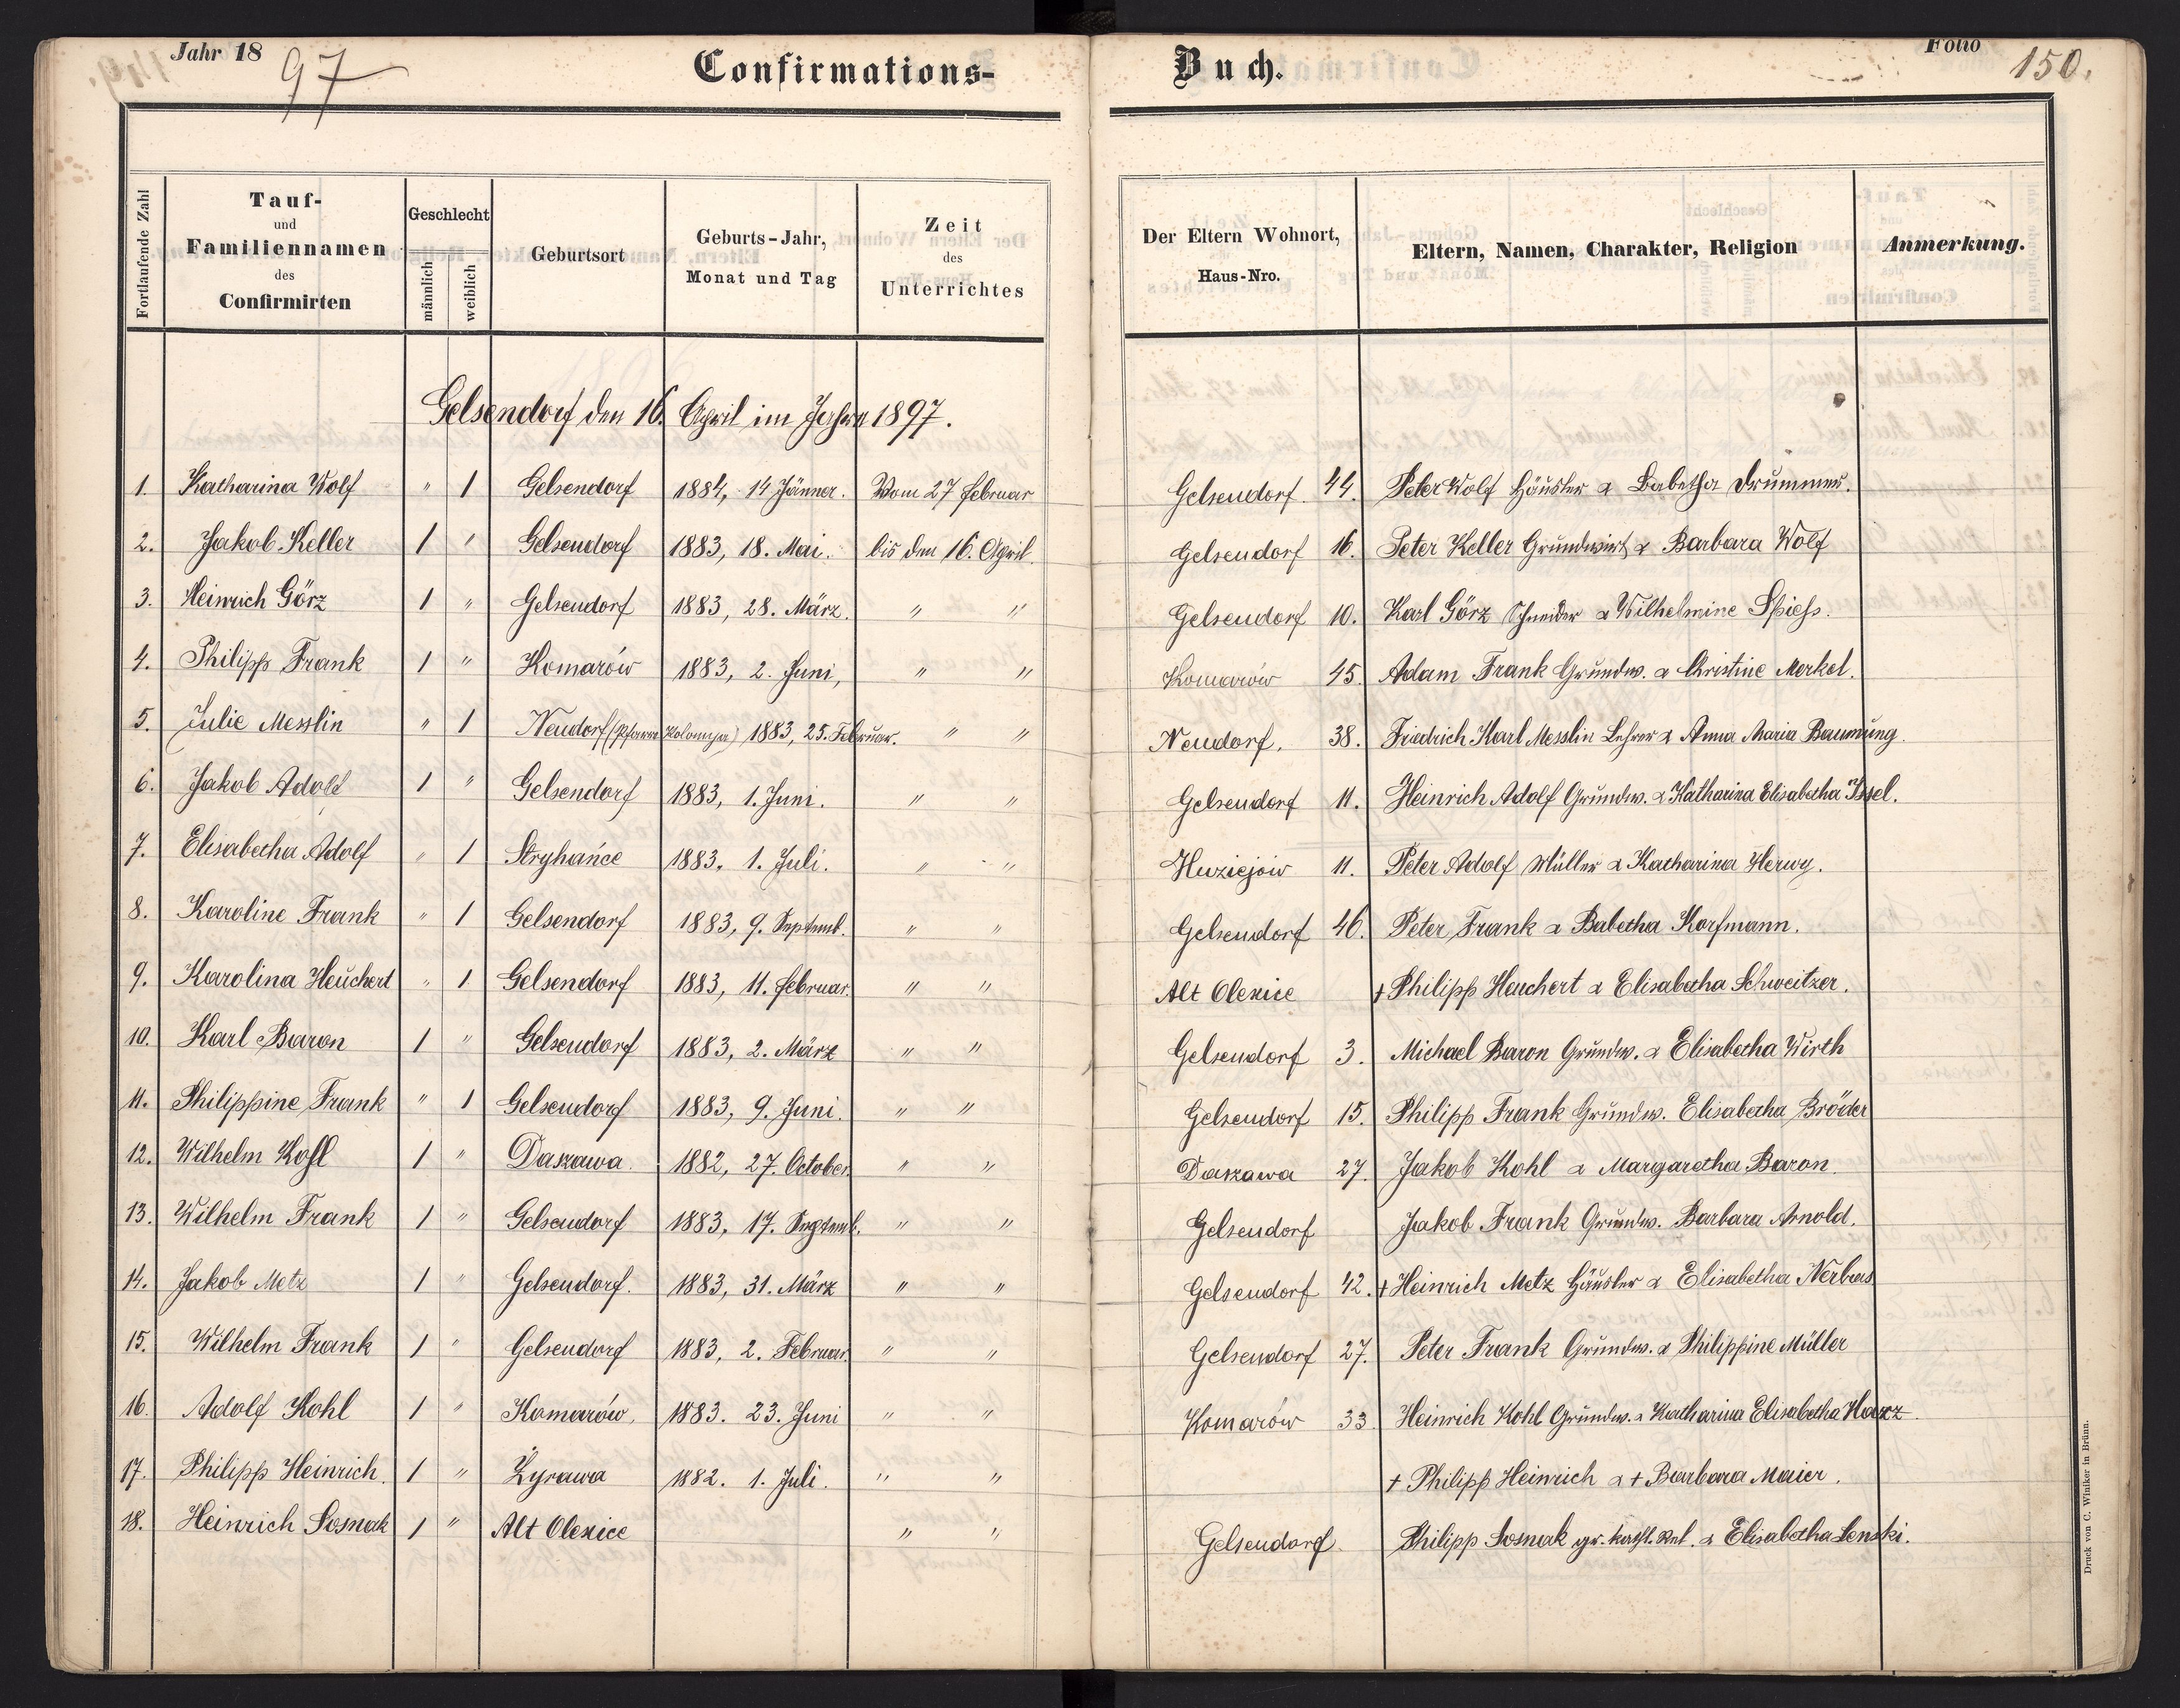 Jahr 18 97
Confirmations-
Buch.
Folio
150.
Fortlaufende Zahl
Tauf-
und
Familiennamen
des
Confirmirten
Geschlecht
männlich
weiblich
Geburtsort
Geburts-Jahr,
Monat und Tag
Zeit
des
Unterrichtes
Der Eltern Wohnort,
Haus-Nro.
Eltern, Namen, Charakter, Religion
Anmerkung.
Gelsendorf den 16. April im Jahre 1897.
1. Katharina Wolf " 1 Gelsendorf 1884, 14 Jänner. Vom 27 Februar Gelsendorf. 44. Peter Wolf Häusler & Babetha Drummer.
2. Jakob Keller 1 " Gelsendorf 1883, 18. Mai. bis den 16. April. Gelsendorf 16. Peter Keller Grundwirt & Barbara Wolf
3. Heinrich Görz 1 " Gelsendorf 1883, 28. März. " " Gelsendorf 10. Karl Görz Schneider & Wilhelmine Spiess.
4. Philipp Frank 1 " Komarów 1883, 2. Juni, " " Komarów 45. Adam Frank Grundw. & Christine Merkel.
5. Julie Messlin " 1 Neudorf (Pfarre Kolomyja) 1883, 25. Februar. " " Neudorf. 38. Friedrich Karl Messlin Lehrer & Anna Maria Baumung.
6. Jakob Adolf 1 " Gelsendorf 1883, 1. Juni. " " Gelsendorf 11. Heinrich Adolf Grundw. & Katharina Elisabetha Issel.
7. Elisabetha Adolf " 1 Stryhańce 1883, 1. Juli. " " Huziejów 11. Peter Adolf Müller & Katharina Herwy.
8. Karoline Frank " 1 Gelsendorf 1883, 9. Septemb. " " Gelsendorf 46. Peter Frank & Babetha Korfmann.
9. Karolina Heuchert " 1 Gelsendorf 1883, 11. Februar. " " Alt Olexice + Philipp Heuchert & Elisabetha Schweitzer.
10. Karl Baron 1 " Gelsendorf 1883, 2. März " " Gelsendorf 3. Michael Baron Grundw. & Elisabetha Wirth
11. Philippine Frank " 1 Gelsendorf 1883, 9. Juni. " " Gelsendorf 15. Philipp Frank Grundw. Elisabetha Bröder
12. Wilhelm Kohl 1 " Daszawa. 1882, 27. October. " " Daszawa 27. Jakob Kohl & Margaretha Baron.
13. Wilhelm Frank 1 " Gelsendorf 1883, 17. Septemb. " " Gelsendorf Jakob Frank Grundw. Barbara Arnold.
14. Jakob Metz 1 " Gelsendorf. 1883, 31. März " " Gelsendorf 42. + Heinrich Metz Häusler & Elisabetha Nerbas
15. Wilhelm Frank 1 " Gelsendorf 1883, 2. Februar. " " Gelsendorf 27. Peter Frank Grundw. & Philippine Müller
16. Adolf Kohl 1 " Komarów. 1883. 23. Juni " " Komarów 33. Heinrich Kohl Grundw. & Katharina Elisabetha Harz.
17. Philipp Heinrich. 1 " Żyrawa 1882. 1. Juli. " " + Philipp Heinrich & + Barbara Maier.
18. Heinrich Sosnak 1 " Alt Olexice " " Gelsendorf. Philipp Sosnak gr. kathl. Rel. & Elisabetha Lenski.
Druck von C. Winiker in Brünn.